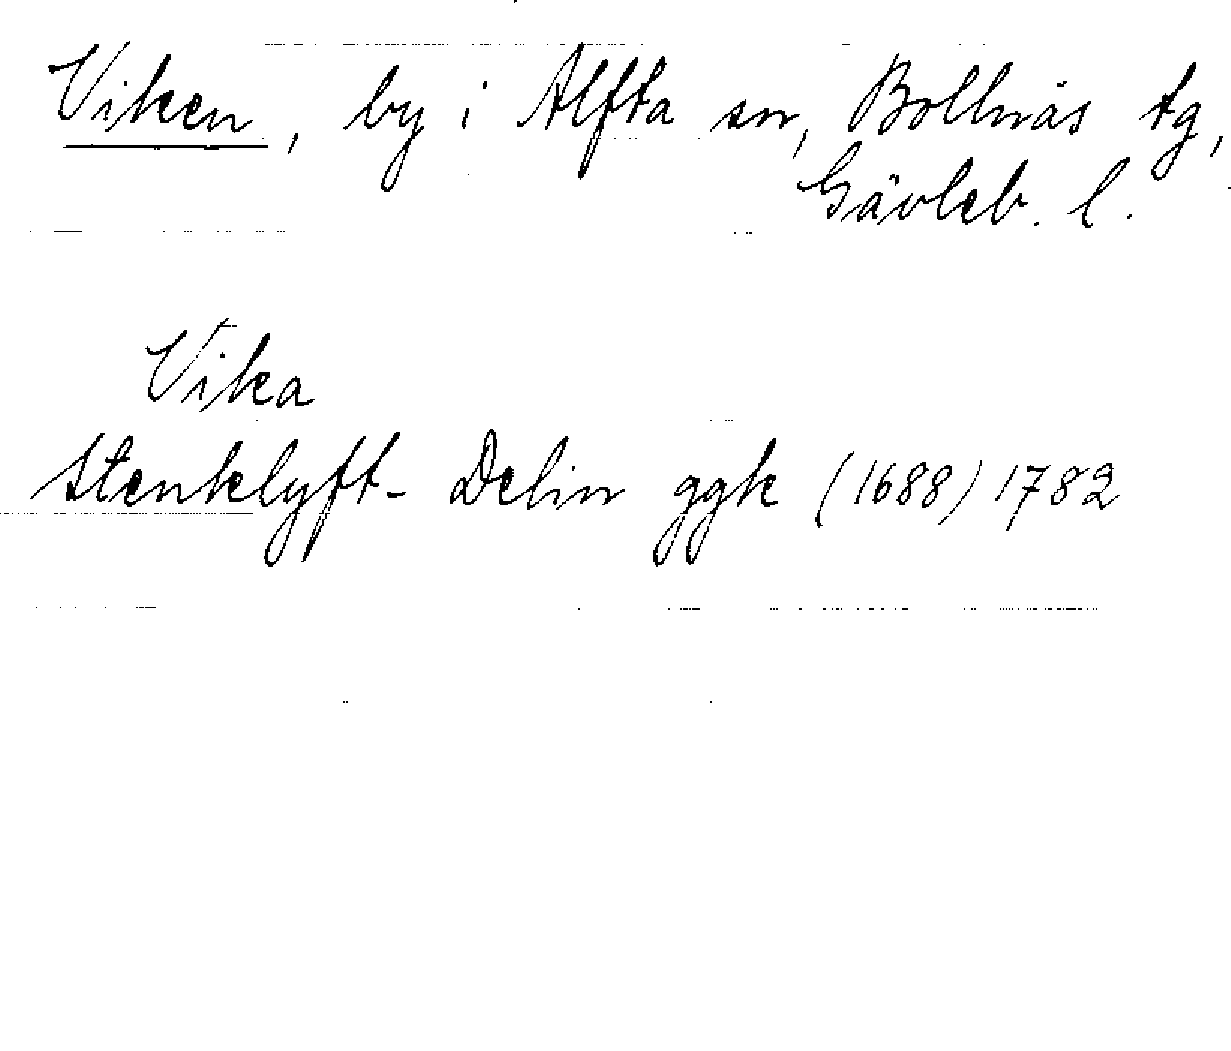 Viken, by i Alfta sn, Bollnäs tg,
Gävleb. l.
Vika
Stenklyft- Delin ggk (1688) 1782